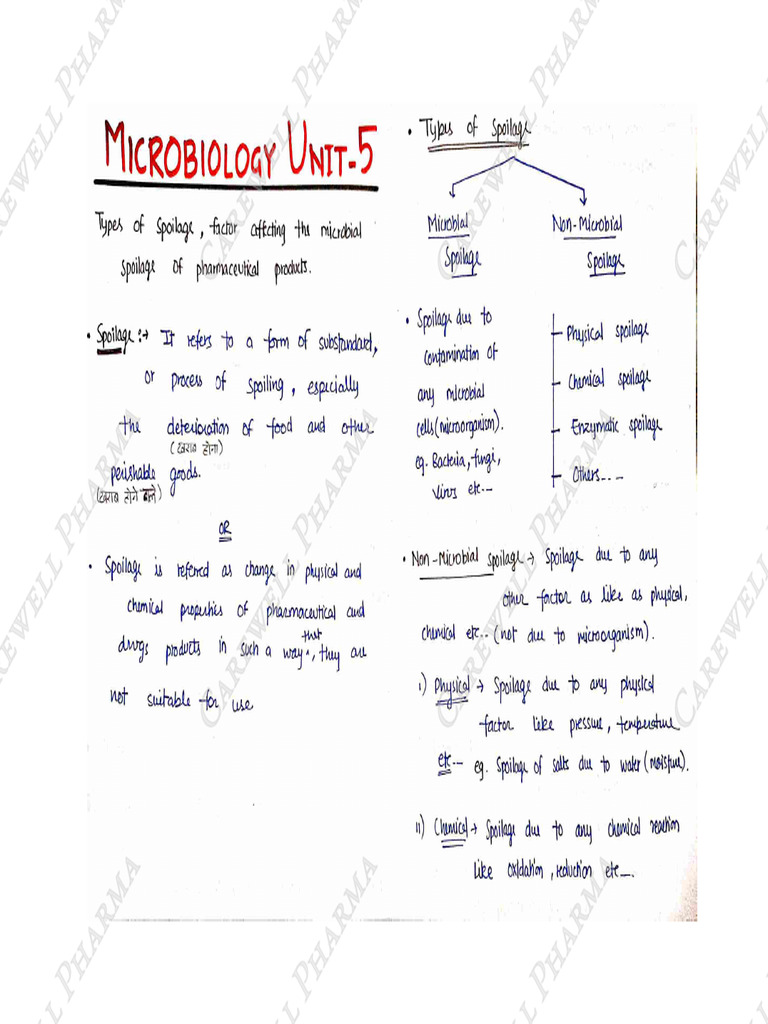 MICROBIOLOGY UNIT-5
Types of Spoilage, factor affecting the microbial
spoilage of pharmaceutical products.
• Spoilage :→ It refers to a form of substandard,
or process of spoiling, especially
the deterioration of food and other
(खराब होना)
perishable goods.
(खराब होने वाले)
OR
• Spoilage is referred as change in physical and
chemical properties of pharmaceutical and
drugs products in such a way that, they are
not suitable for use
• Types of Spoilage
Microbial
Spoilage
Non-Microbial
Spoilage
• Spoilage due to
contamination of
any microbial
cells (microorganism).
eg. Bacteria, fungi,
virus etc--
Physical spoilage
Chemical spoilage
Enzymatic spoilage
Others....
• Non-Microbial spoilage → Spoilage due to any
other factor as like as physical,
chemical etc.. (not due to microorganism).
i) Physical → Spoilage due to any physical
factor like pressure, temperature
etc-- eg. Spoilage of salts due to water (moisture).
ii) Chemical → Spoilage due to any chemical reaction
like oxidation, reduction etc--.
CAREWELL PHARMA